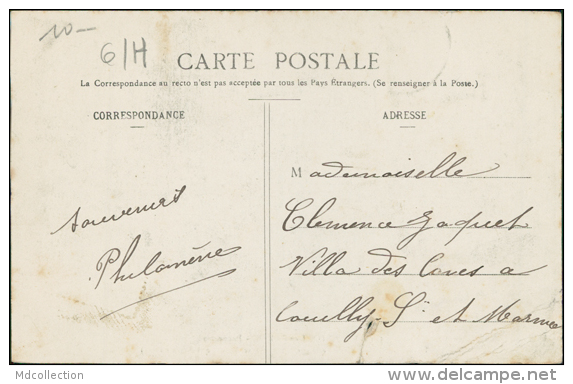 10-
6/H
CARTE POSTALE
La Correspondance au recto n'est pas acceptée par tous les Pays Étrangers. (Se renseigner à la Poste.)
CORRESPONDANCE
ADRESSE
Mademoiselle
Clemence Jaquet
Villa des Caves a
Couilly, S. et Marne
Souvenirs
Philomène
Mdcollection
www.delcampe.net